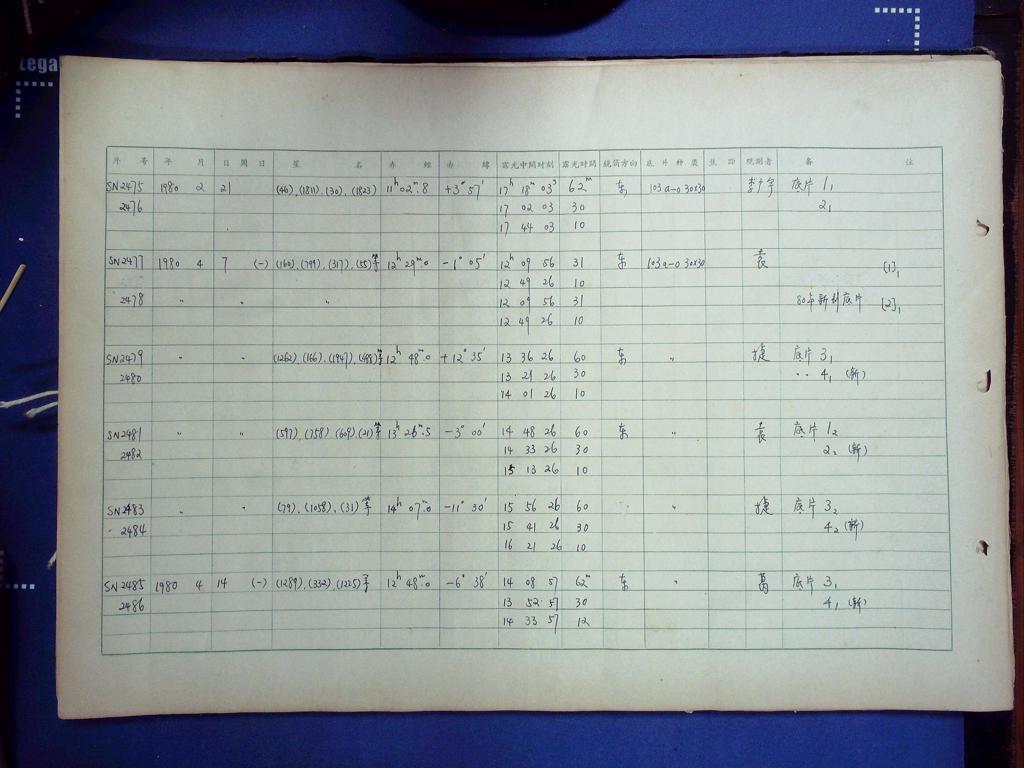 Lega
片 号 年 月 日 周 日 星 名 赤 经 赤 纬 露光中间时刻 露光时间 镜筒方向 底片种类 焦距 观测者 备 注
SN2475 1980 2 21 (46),(1811),(30),(1823) 11h 02m.8 +3° 57′ 17h 18m 03s 62m 东 103a-0 30x30 李广宇 底片 1₁
2476 17 02 03 30 2₁
17 44 03 10
SN2477 1980 4 7 (一) (160),(799),(317),(55)等 12h 29m.0 -1° 05′ 12h 09 56 31 东 103a-0 30x30 袁 [1]₁
12 49 26 10
2478 〃 〃 〃 12 09 56 31 80年新到底片 [2]₁
12 49 26 10
SN2479 〃 〃 (1262),(166),(1947),(488)等 12h 48m.0 +12° 35′ 13 36 26 60 东 〃 捷 底片 3₁
2480 13 21 26 30 〃 4₁ (新)
14 01 26 10
SN2481 〃 〃 (597),(758) (609),(21)等 13h 26m.5 -3° 00′ 14 48 26 60 东 〃 袁 底片 1₂
2482 14 33 26 30 2₂ (新)
15 13 26 10
SN2483 〃 〃 (79),(1058),(31)等 14h 07m.0 -11° 30′ 15 56 26 60 〃 捷 底片 3₂
2484 15 41 26 30 4₂ (新)
16 21 26 10
SN2485 1980 4 14 (一) (1289),(332),(1225)等 12h 48m.0 -6° 38′ 14 08 57 62m 东 〃 葛 底片 3₁
2486 13 52 57 30 4₁ (新)
14 33 57 12